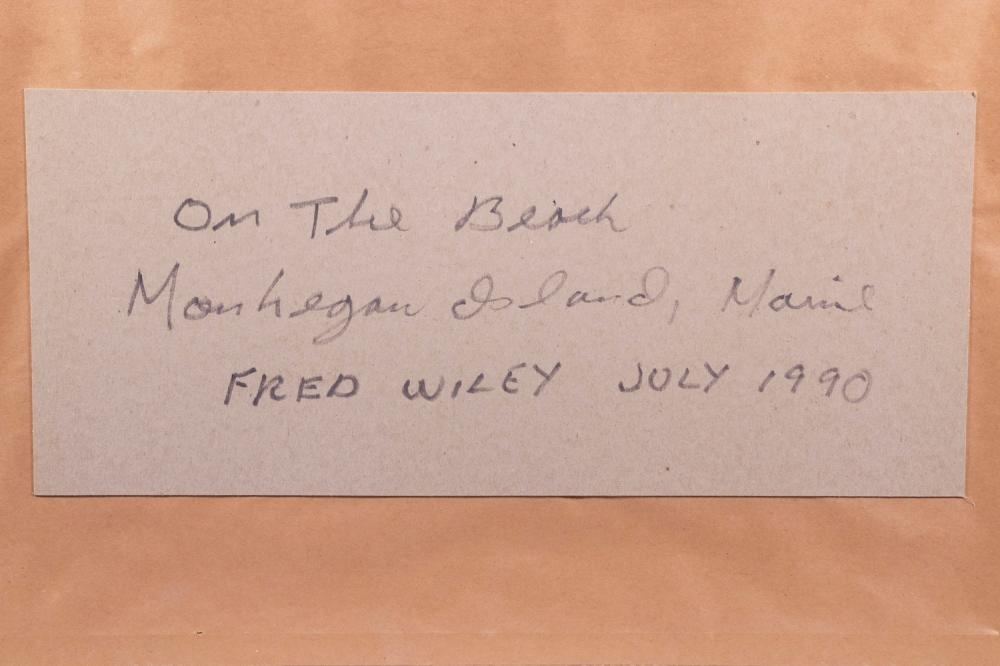 On The Beach
Monhegan Island, Maine
FRED WILEY JULY 1990